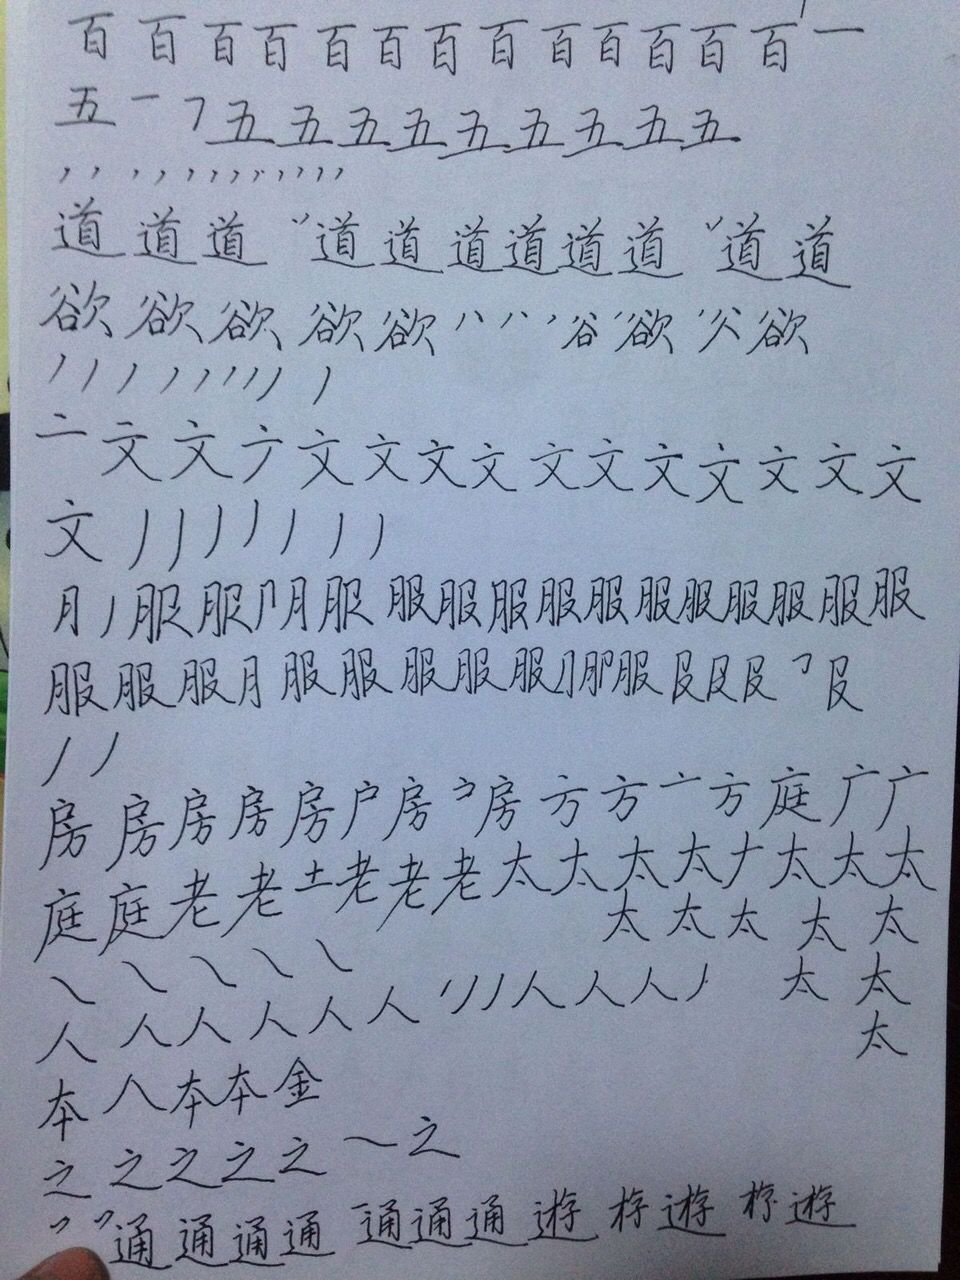 百百百百百百百百百百百百百一
五一㇇五五五五五五五五五
道道道丷道道道道道道丷道道
欲欲欲欲欲八八丶谷欲父欲
亠文文亠文文文文文文文文文文文
文丿丿丿丿丿丿丿
月丿服服月服服服服服服服服服服服服
服服服月服服服服服月服𠬝𠬝𠬝㇇𠬝
丿丿
房房房房房户房房方方亠方庭广广
庭庭老老土老老老太太太太𠂇太太太
太太太太太
㇏㇏㇏㇏㇏
太太
人人人人人人丿丿丿人人人丿
太
本人本本金
之之之之之㇏之
通通通通通通通遊遊遊